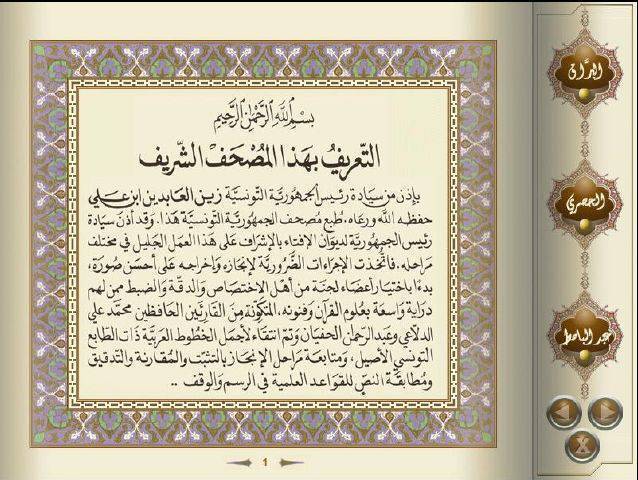 بسم الله الرحمن الرحيم
التعريف بهذا المصحف الشريف
بإذن من سيادة رئيس الجمهورية التونسية زين العابدين ابن علي
حفظه الله ورعاه، طبع مصحف الجمهورية التونسية هذا. وقد أذن سيادة
رئيس الجمهورية لديوان الإفتاء بالإشراف على هذا العمل الجليل في مختلف
مراحله. فاتخذت الإجراءات الضرورية لإنجازه وإخراجه على أحسن صورة،
بدءا باختيار أعضاء لجنة من أهل الاختصاص والدقة والضبط ممن لهم
دراية واسعة بعلوم القرآن وفنونه، المتكونة من القارئين الحافظين محمد علي
الدلاعي وعبد الرحمان الحفيان وتم انتقاء لأجمل الخطوط العربية ذات الطابع
التونسي الأصيل، ومتابعة مراحل الإنجاز بالتثبت والمقارنة والتدقيق
ومطابقة النص للقواعد العلمية في الرسم والوقف ..
1
الحصري
عبد الباسط
X